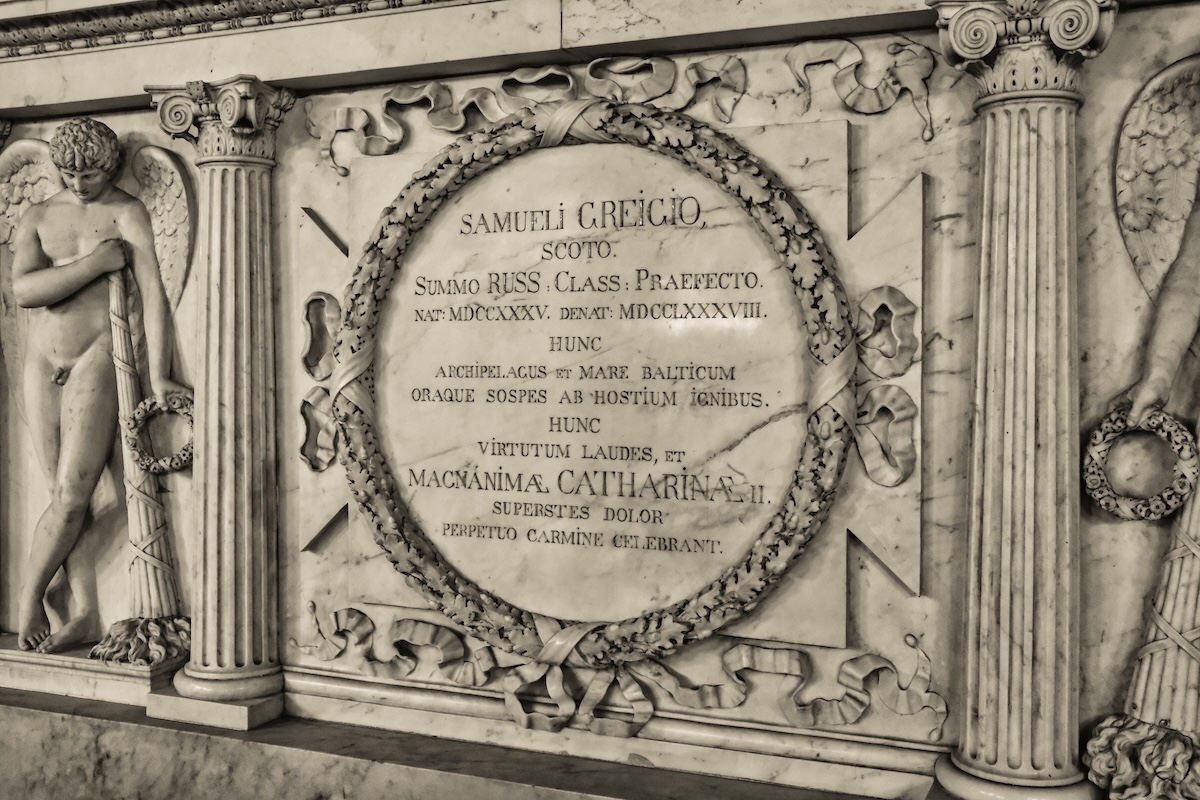 SAMUELi GREiGiO,
SCOTO.
SUMMO RUSS : CLASS : PRAEFECTO.
NAT: MDCCXXXV. DENAT: MDCCLXXXVIII.
HUNC
ARCHiPELAGUS ET MARE BALTICUM
ORAQUE SOSPES AB HOSTIUM iGNIBUS.
HUNC
ViRTUTUM LAUDES, ET
MAGNÁNiMÆ CATHARiNÆ II.
SUPERSTES DOLOR
PERPETUO CARMiNE CELEBRANT.